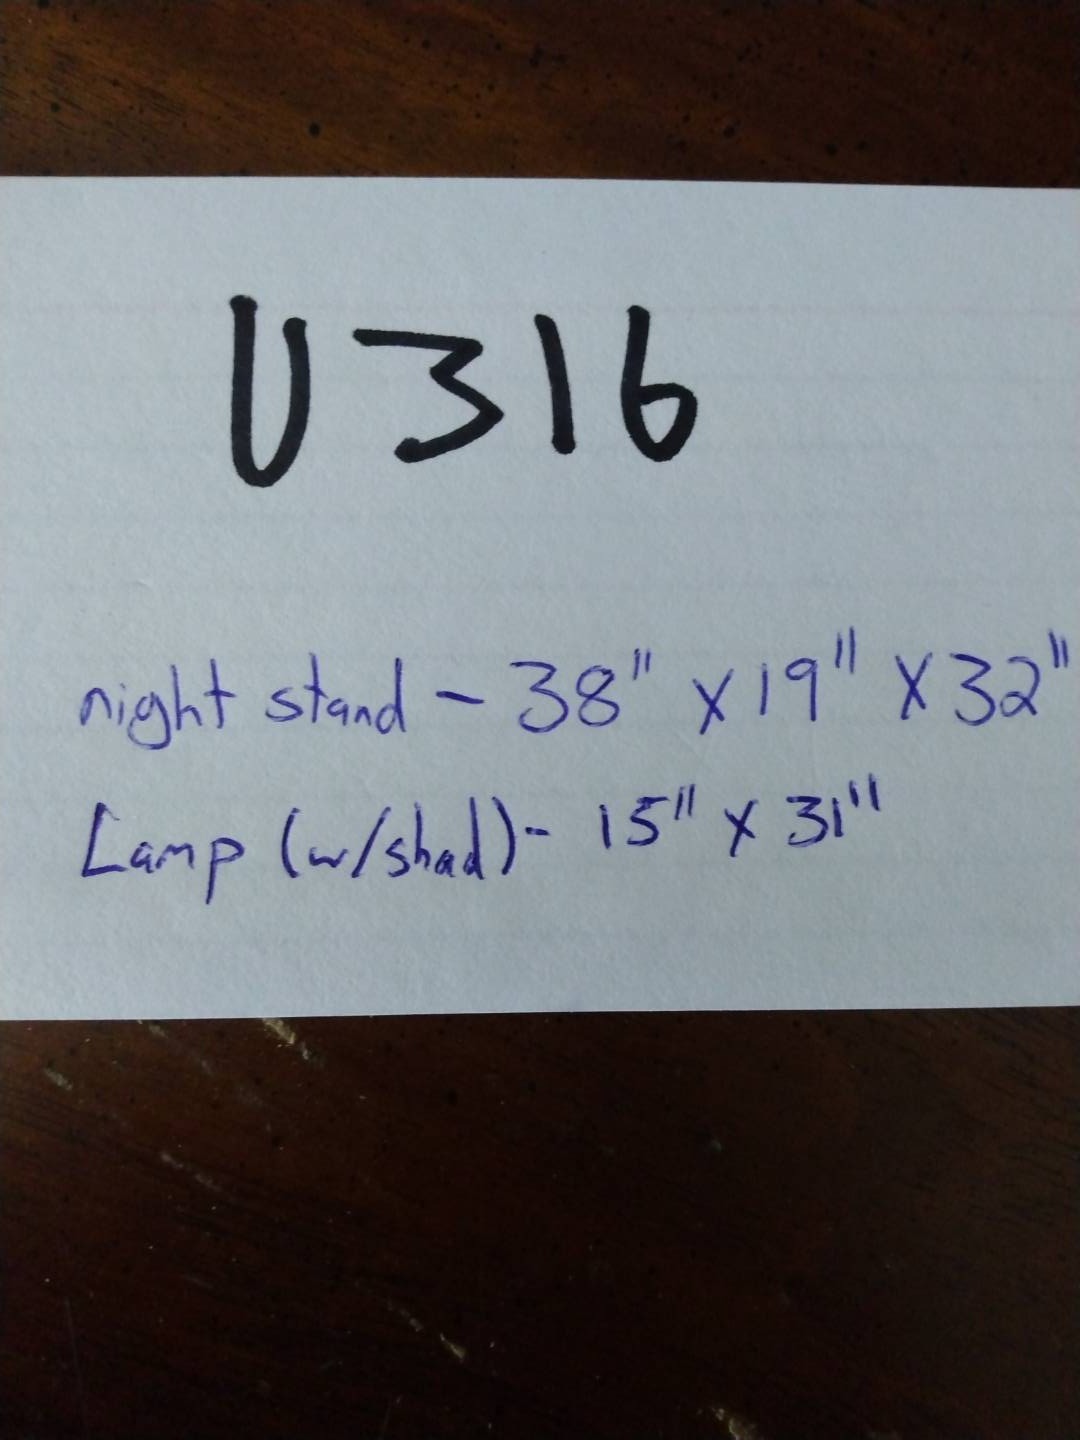 U316
night stand - 38" x 19" x 32"
Lamp (w/shad)- 15" x 31"